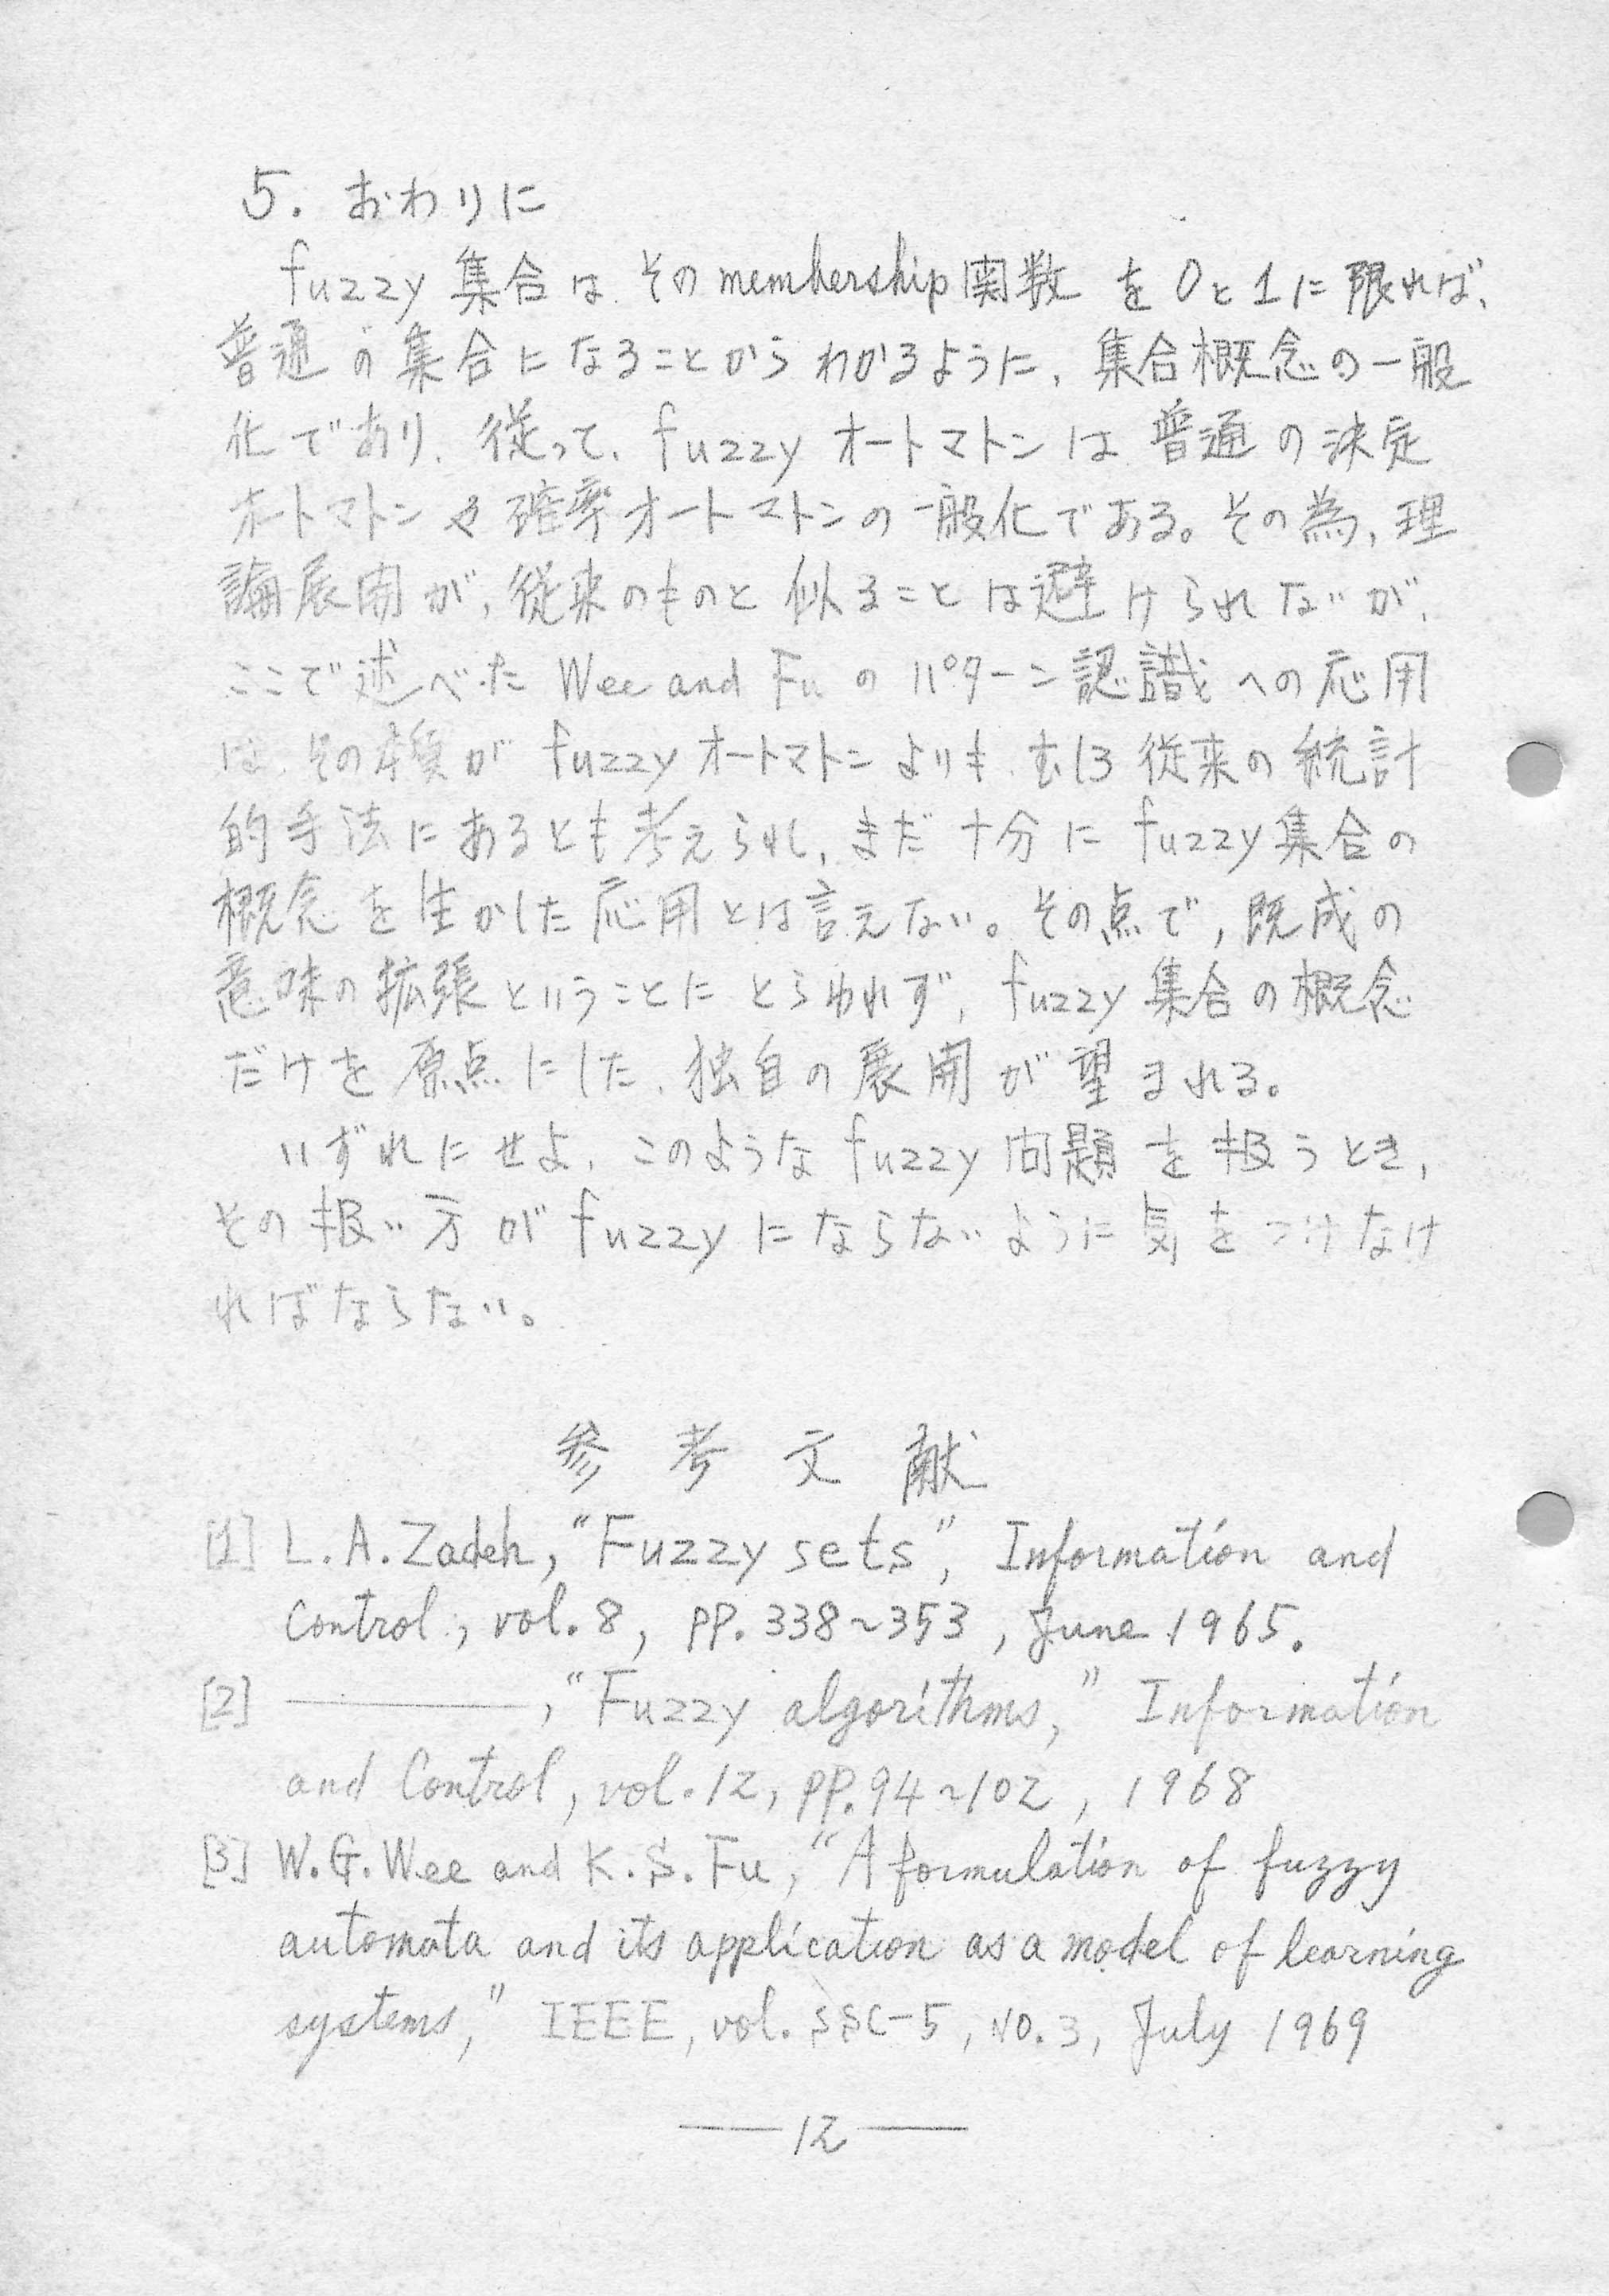 5. おわりに
fuzzy 集合は、その membership 関数 を 0 と 1 に 限れば、
普通の集合になることからわかるように、集合概念の一般
化であり、従って、fuzzy オートマトンは 普通の決定
オートマトンや確率オートマトンの一般化である。その為、理
論展開が、従来のものと似ることは避けられないが、
ここで述べた Wee and Fu の パターン認識への応用
は、その本質が fuzzy オートマトンよりも、むしろ従来の統計
的手法にあるとも考えられ、まだ十分に fuzzy 集合の
概念を生かした応用とは言えない。その点で、既成の
意味の拡張ということにとらわれず、fuzzy 集合の概念
だけを原点にした、独自の展開が望まれる。
いずれにせよ、このような fuzzy 問題を扱うとき、
その扱い方が fuzzy にならないように気をつけなけ
ればならない。
参考文献
[1] L.A.Zadeh, "Fuzzy sets", Information and
Control, vol.8, pp.338~353, June 1965.
[2] ———, "Fuzzy algorithms," Information
and Control, vol.12, pp.94~102, 1968
[3] W.G.Wee and K.S.Fu, "A formulation of fuzzy
automata and its application as a model of learning
systems," IEEE, vol. SSC-5, NO.3, July 1969
— 12 —